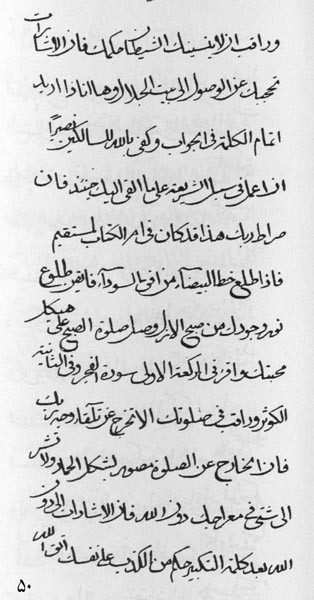 وراقب ان لا ينسينك الشيطان حكمك فان الاشارات
تحجبك عن الوصول الى بيت الجلال وها انا ذا اريد
اتمام الكلمة في الجواب وكفى بالله للسالكين نصيرا
اذا عمل في سبل الشريعة على ما القي اليك حينئذ فان
صراط ربك هذا قد كان في ام الكتاب لمستقيم
فاذا طلع خط البيضاء من افق السوداء فاقرن طلوع
نور وجودك من صبح الازل وصل صلوة الصبح على هيكل
محبتك واقرء في الركعة الاولى سورة الفجر وفي الثانية
الكوثر وراقب في صلوتك الا تخرج عن تلقاء وجه ربك
فان الخارج عن الصلوة مصور بشكل الحمار ولا تشر
الى شيء في معراجك دون الله فان الاشارات الى دون
الله بعد كلمة التكبير حكم من الكذب على نفسك اتق الله
۵۰